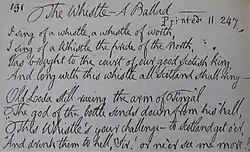 131
The Whistle — A Ballad —
Printed II 247
I sing of a whistle a whistle of worth,
I sing of a Whistle the pride of the North,
Was brought to the court of our good Scotish king
And long with this whistle all Scotland shall ring —
Old Loda still rueing the arm of Fingal
The god of the bottle sends down from his hall,
This Whistle's your challenge — to Scotland get o'er,
And drink them to hell, Sir, or ne'er see me more!